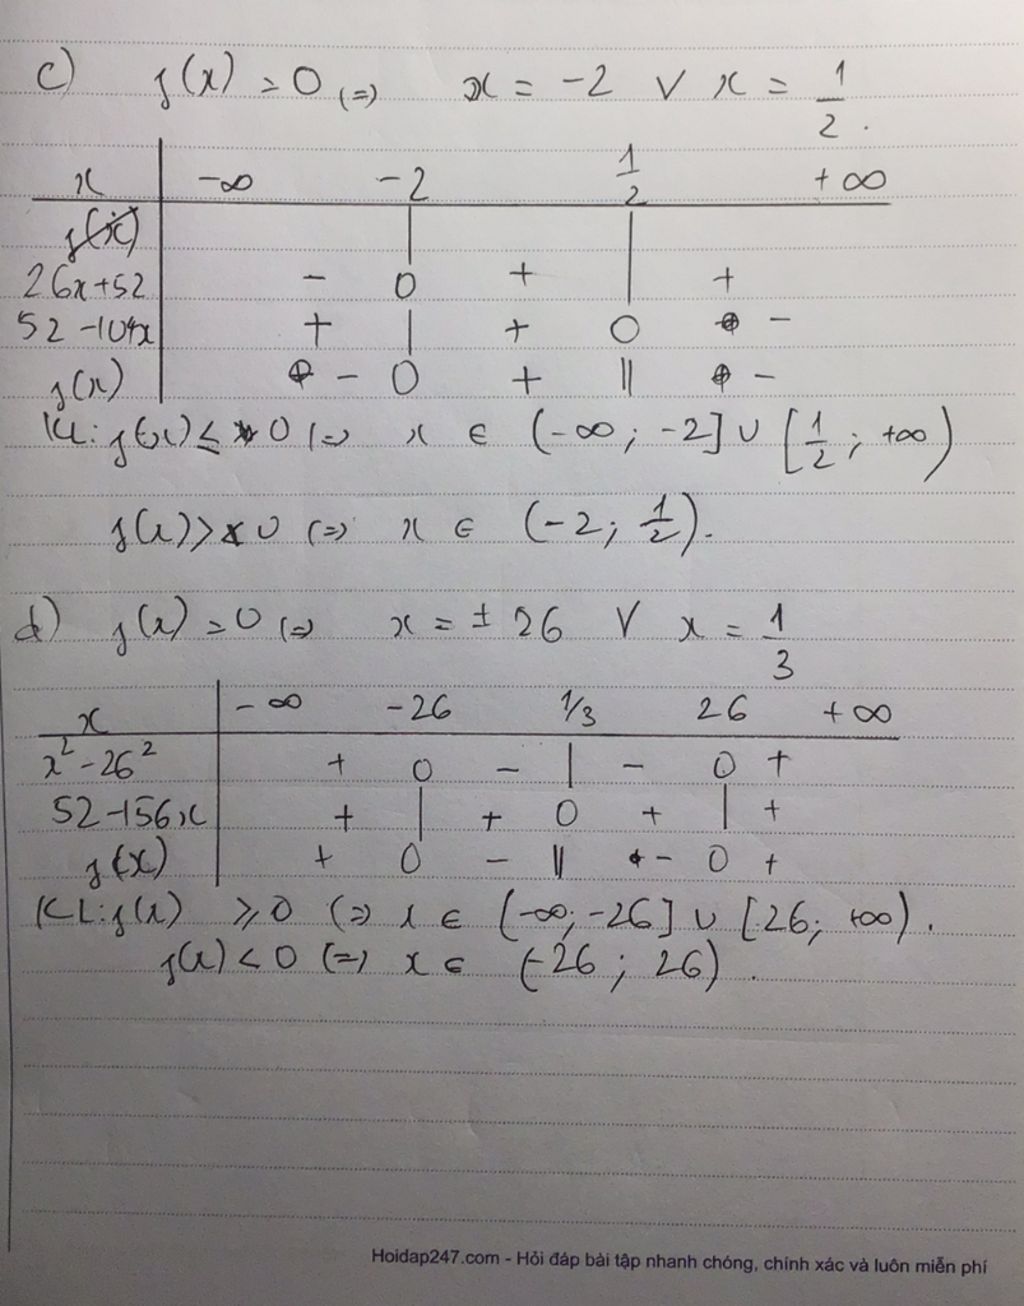 c) f(x) = 0 (=) x = -2 ∨ x = 1/2.
x -∞ -2 1/2 +∞
f(x)
26x+52 - 0 + | +
52-104x + | + 0 -
f(x) - 0 + || -
KL: f(x) ≤ 0 (=) x ∈ (-∞; -2] ∪ [1/2; +∞)
f(x) > 0 (=) x ∈ (-2; 1/2).
d) f(x) = 0 (=) x = ± 26 ∨ x = 1/3
x -∞ -26 1/3 26 +∞
x²-26² + 0 - | - 0 +
52-156x + | + 0 + | +
f(x) + 0 - || - 0 +
KL: f(x) ≥ 0 (=) x ∈ (-∞; -26] ∪ [26; +∞).
f(x) < 0 (=) x ∈ (-26; 26).
Hoidap247.com - Hỏi đáp bài tập nhanh chóng, chính xác và luôn miễn phí